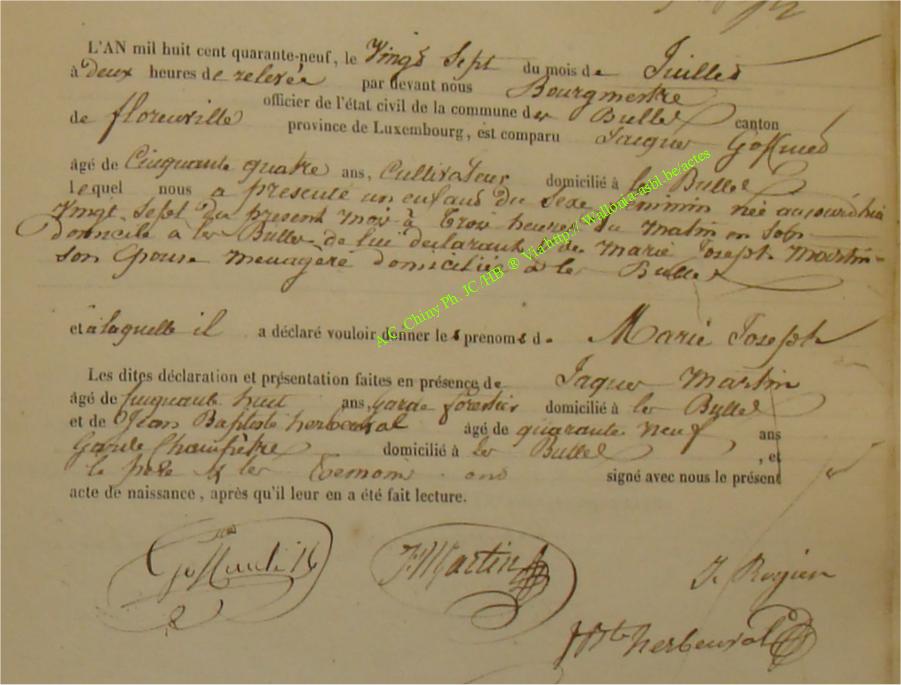 L'AN mil huit cent quarante-neuf, le Vingt Sept du mois de Juillet
à deux heures de relevée par devant nous Bourgmestre
officier de l'état civil de la commune des Bulles canton
de florenville province de Luxembourg, est comparu Jacque Goffinet
âgé de Cinquante quatre ans, Cultivateur domicilié à les Bulles
lequel nous a présenté un enfant du sexe feminin née aujourd'hui
Vingt Sept du présent mois à trois heures du matin en son
domicile à les Bulles de lui declarant et de Marie Joseph Martin
son Epouse menagère domiciliée à les Bulles
et à laquelle il a déclaré vouloir donner les prenoms de Marie Joseph
Les dites déclaration et présentation faites en présence de Jaques Martin
âgé de Cinquante huit ans, Garde forestier domicilié à les Bulles
et de Jean Baptiste herbeuval âgé de quarante neuf ans
Garde Champêtre domicilié à les Bulles, et
le père et les temoins ont signé avec nous le présent
acte de naissance, après qu'il leur en a été fait lecture.
J: Martin
herbeuval
A.C. Chiny Ph. JC/HB ® Via http://Wallonia-asbl.be/actes